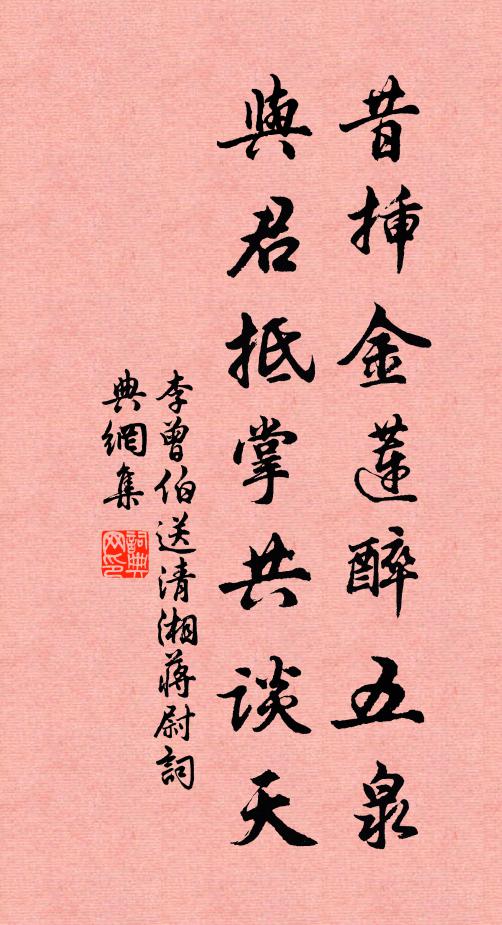 昔挿金蓮醉五泉
與君抵掌共談天
李曾伯送清湘蔣尉詞
典網集
詞典
网印